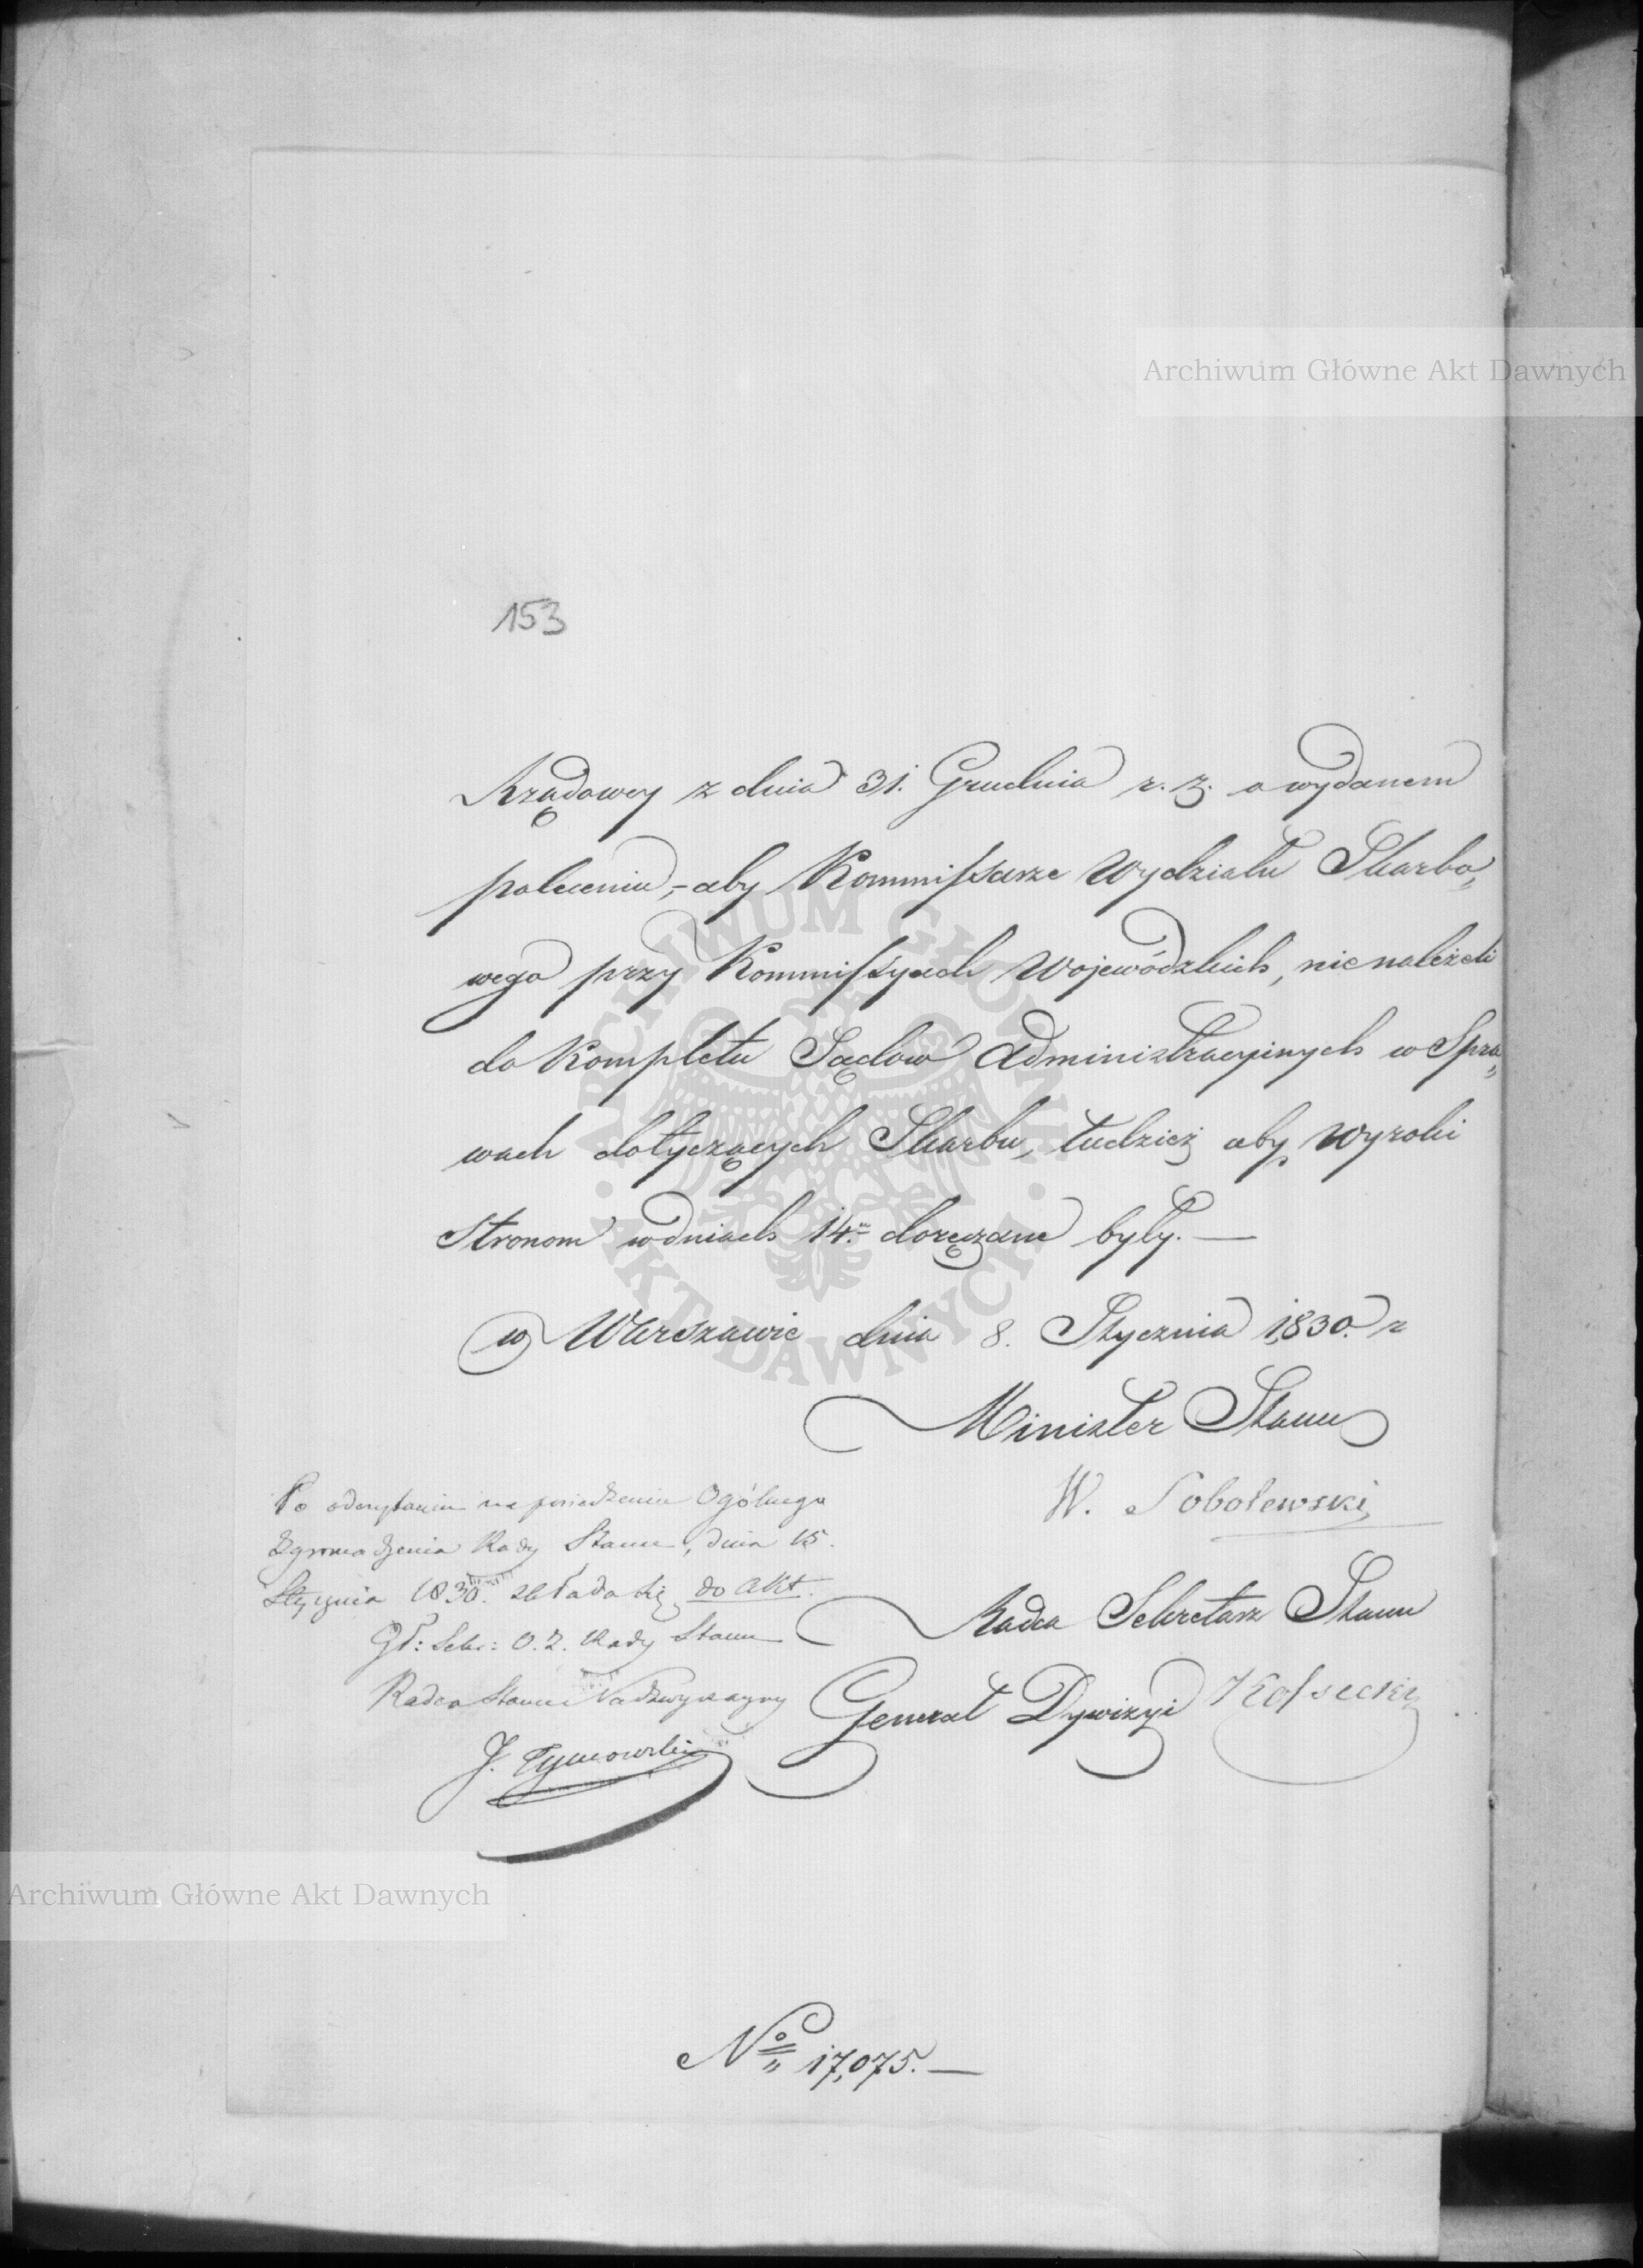 Archiwum Główne Akt Dawnych
153
Rządowey z dnia 31. Grudnia r. z. o wydanem
poleceniu, - aby Kommissarze Wydziału Skarbo„
wego przy Kommissyach Wojewódzkich, nie należeli
do Kompletu Sądów Administracyinych w Spra„
wach dotyczących Skarbu, tudzież aby Wyroki
Stronom w dniach 14. doręczane były. —
w Warszawie dnia 8. Stycznia 1830. r
Minister Stanu
W. Sobolewski
Radca Sekretarz Stanu
Generał Dywizyi Kossecki
Po odczytaniu na posiedzeniu Ogólnego
Zgromadzenia Rady Stanu, dnia 15.
Stycznia 1830. składa się do Akt.
Gł: Sekr: O. Z. Rady Stanu
Radca Stanu Nadzwyczayny
J. Tymowski
No 17,075. —
ARCHIWUM GŁÓWNE
AKT DAWNYCH
Archiwum Główne Akt Dawnych